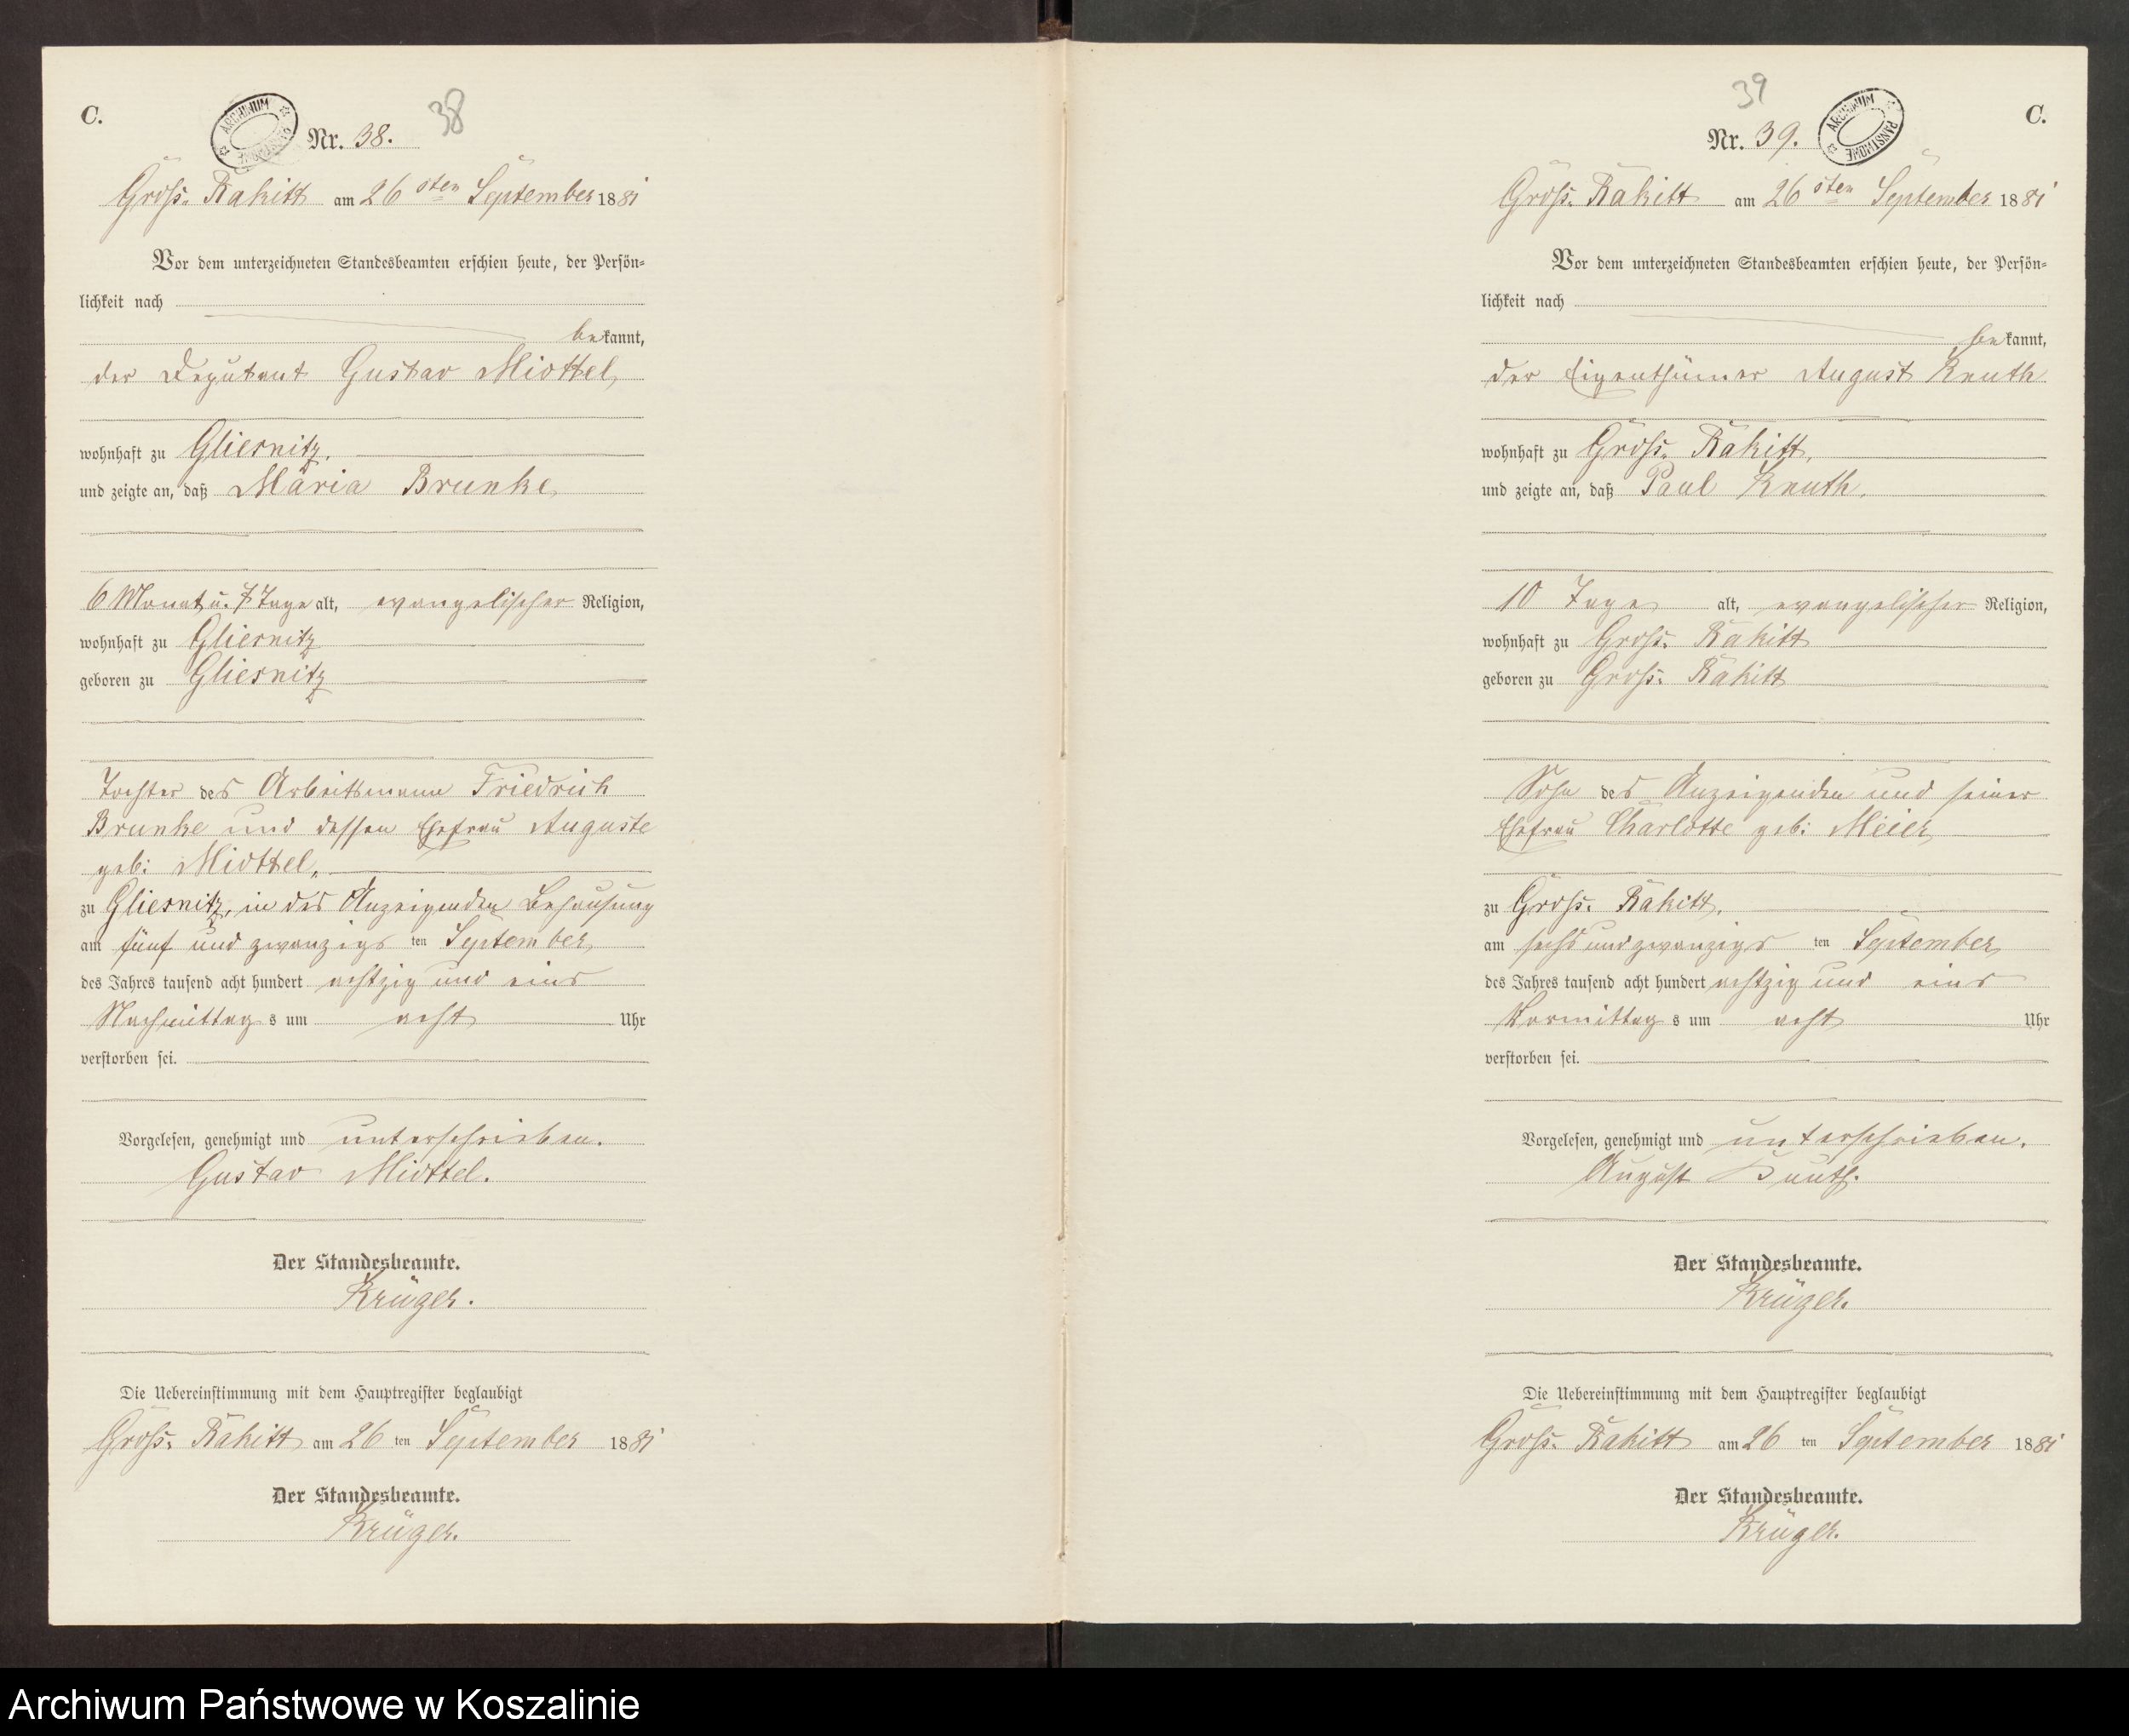 C.
ARCHIWUM PAŃSTWOWE
38
Nr. 38.
Groß. Rakitt am 26 sten September 1881
Vor dem unterzeichneten Standesbeamten erschien heute, der Persön-
lichkeit nach
bekannt,
der Deputant Gustav Miottel,
wohnhaft zu Gliesnitz,
und zeigte an, daß Maria Brunke,
6 Monat u. 7 Tage alt, evangelischer Religion,
wohnhaft zu Gliesnitz
geboren zu Gliesnitz
Tochter des Arbeitsmann Friedrich
Brunke und dessen Ehefrau Auguste
geb: Miottel,
zu Gliesnitz, in des Anzeigenden Behausung
am fünf und zwanzigs ten September
des Jahres tausend acht hundert achtzig und eins
Nachmittag s um acht Uhr
verstorben sei.
Vorgelesen, genehmigt und unterschrieben.
Gustav Miottel.
Der Standesbeamte.
Krüger.
Die Uebereinstimmung mit dem Hauptregister beglaubigt
Groß. Rakitt am 26 ten September 1881
Der Standesbeamte.
Krüger.
39
C.
Nr. 39.
ARCHIWUM PAŃSTWOWE
Groß. Rakitt am 26 sten September 1881
Vor dem unterzeichneten Standesbeamten erschien heute, der Persön-
lichkeit nach
bekannt,
der Eigenthümer August Knuth
wohnhaft zu Groß. Rakitt,
und zeigte an, daß Paul Knuth,
10 Tage alt, evangelischer Religion,
wohnhaft zu Groß. Rakitt
geboren zu Groß. Rakitt
Sohn des Anzeigenden und seiner
Ehefrau Charlotte geb: Meier,
zu Groß. Rakitt,
am sechs und zwanzigs ten September
des Jahres tausend acht hundert achtzig und eins
Vormittag s um acht Uhr
verstorben sei.
Vorgelesen, genehmigt und unterschrieben.
August Knuth.
Der Standesbeamte.
Krüger.
Die Uebereinstimmung mit dem Hauptregister beglaubigt
Groß. Rakitt am 26 ten September 1881
Der Standesbeamte.
Krüger.
Archiwum Państwowe w Koszalinie